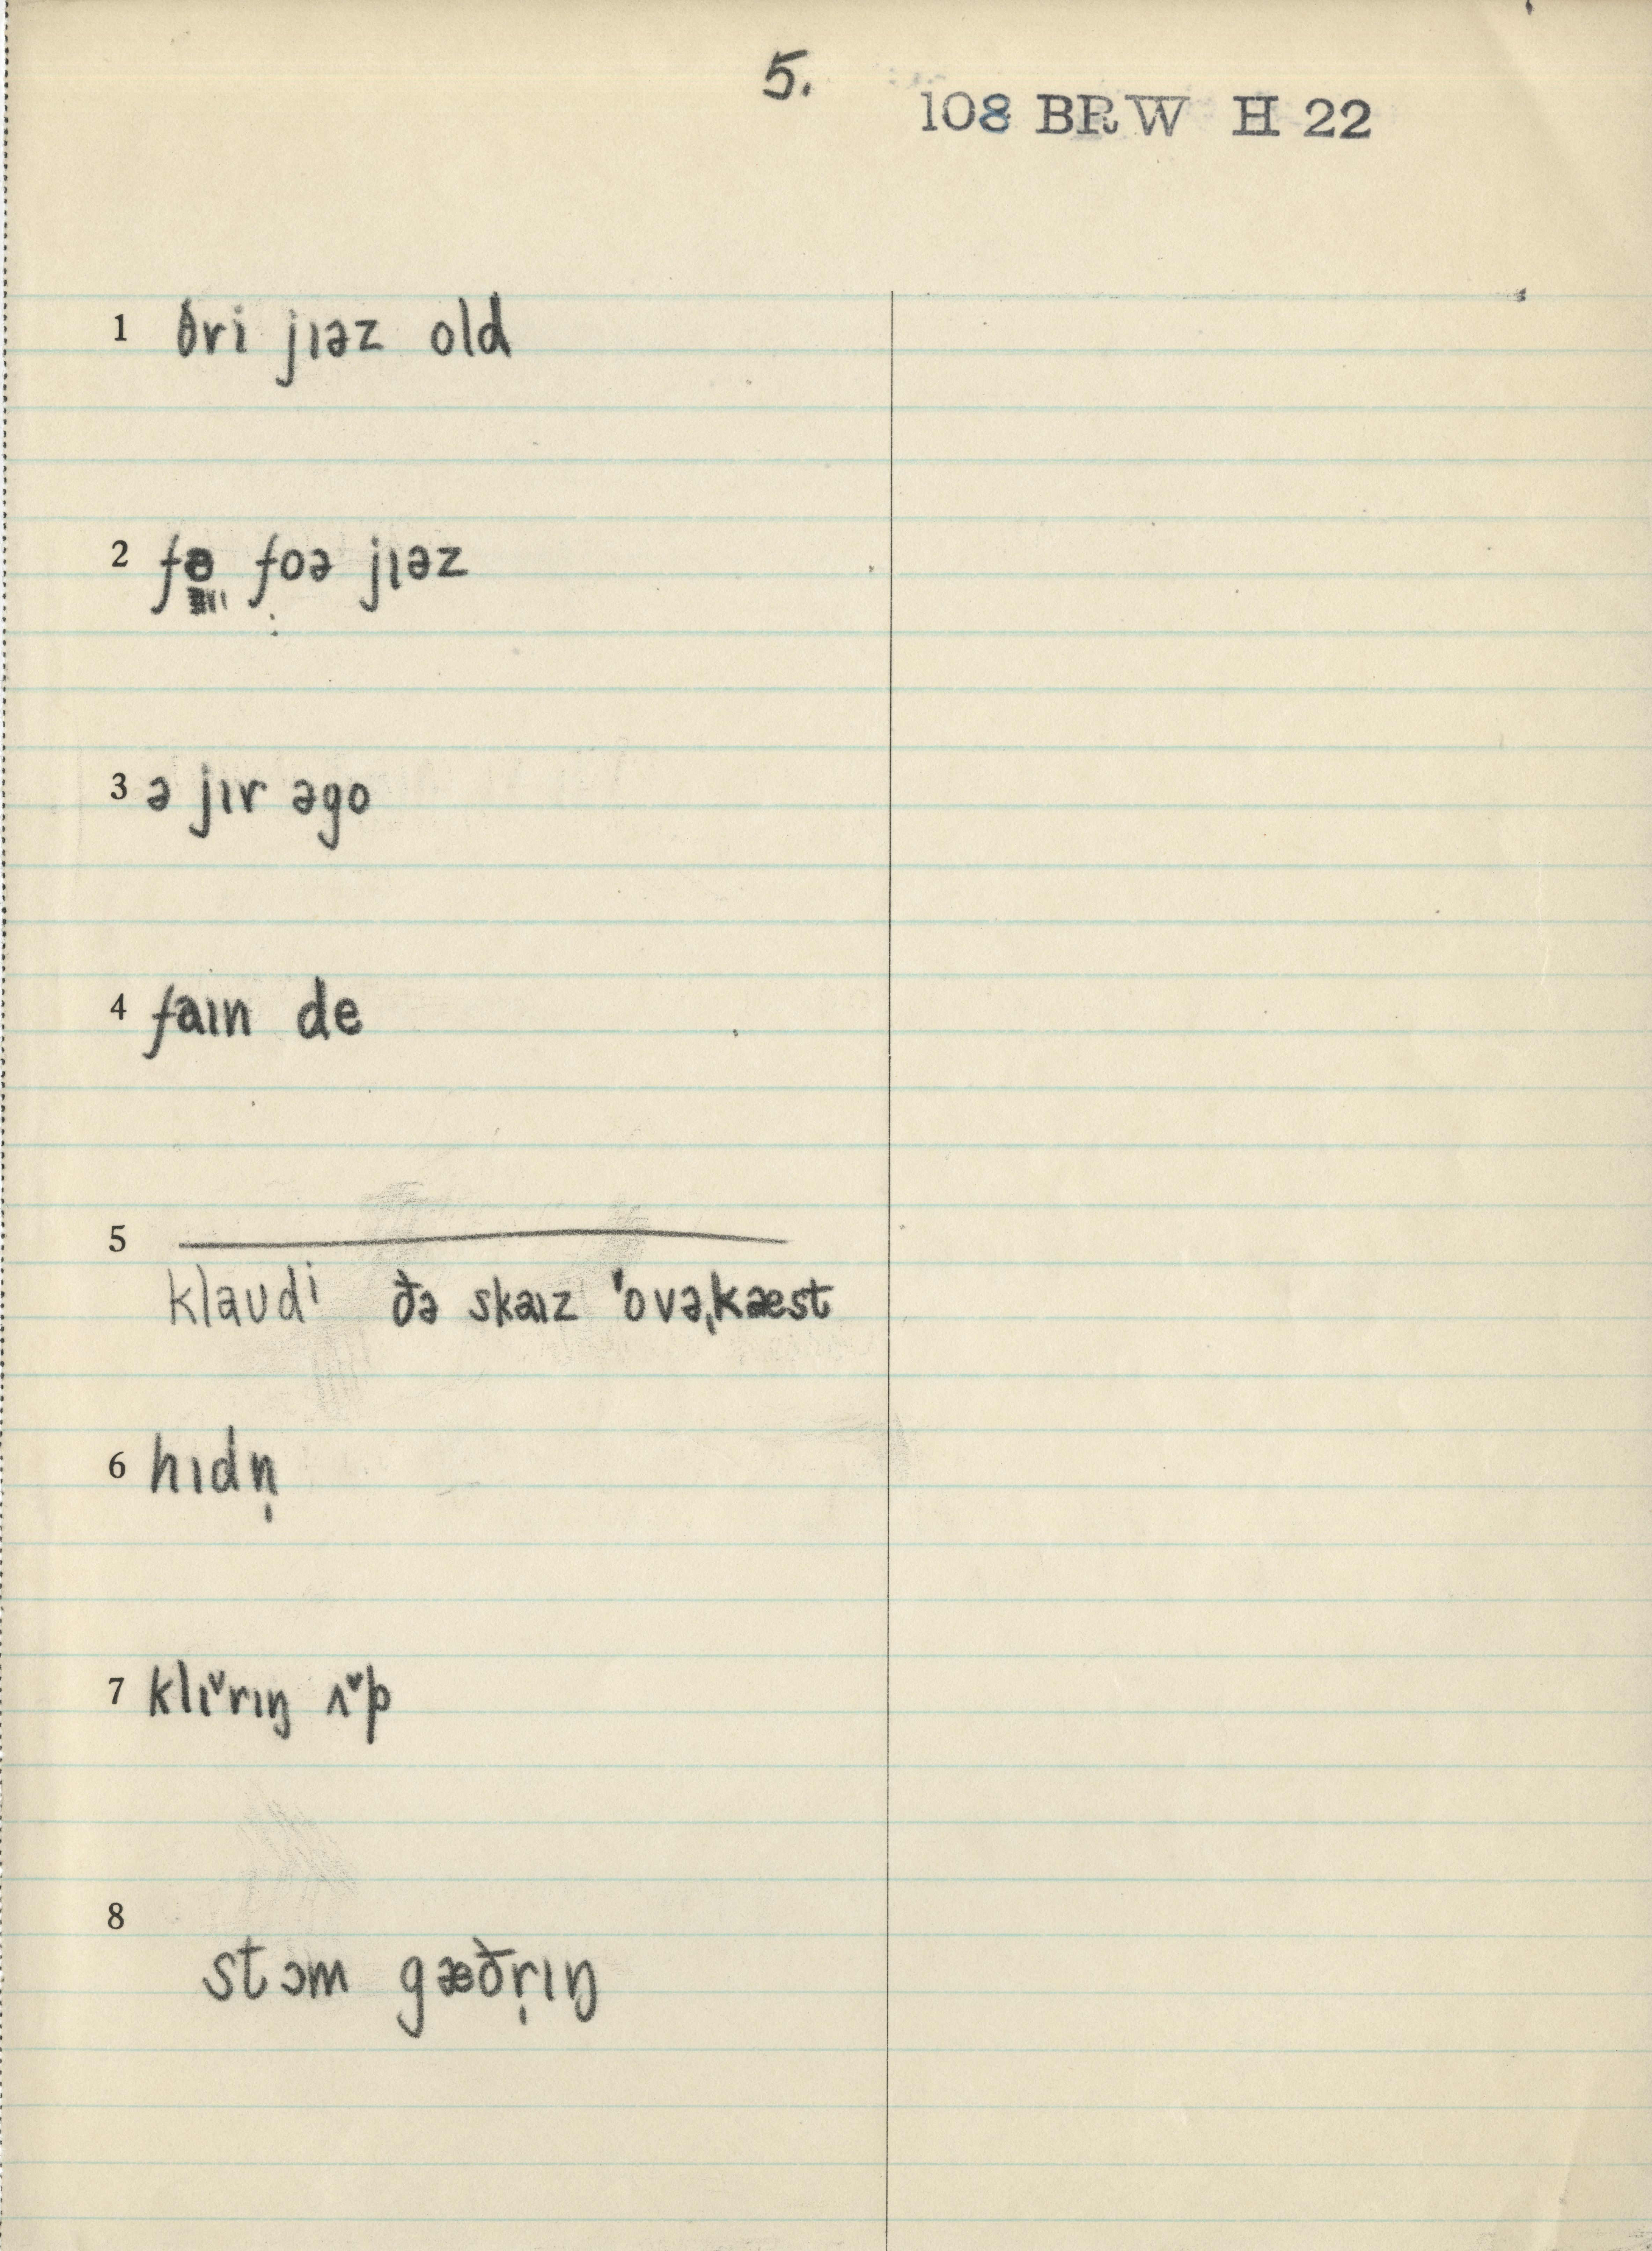 5.
108 BRW H 22
1 θri jɪəz old
2 foə jɪəz
3 ə jɪr əgo
4 faɪn de
5
klaʊdi ðə skaɪz ˈovəˌkæst
6 hɪdn̩
7 klɪ˅rɪŋ ʌ˅p
8
stɔm gæðr̩ɪŋ